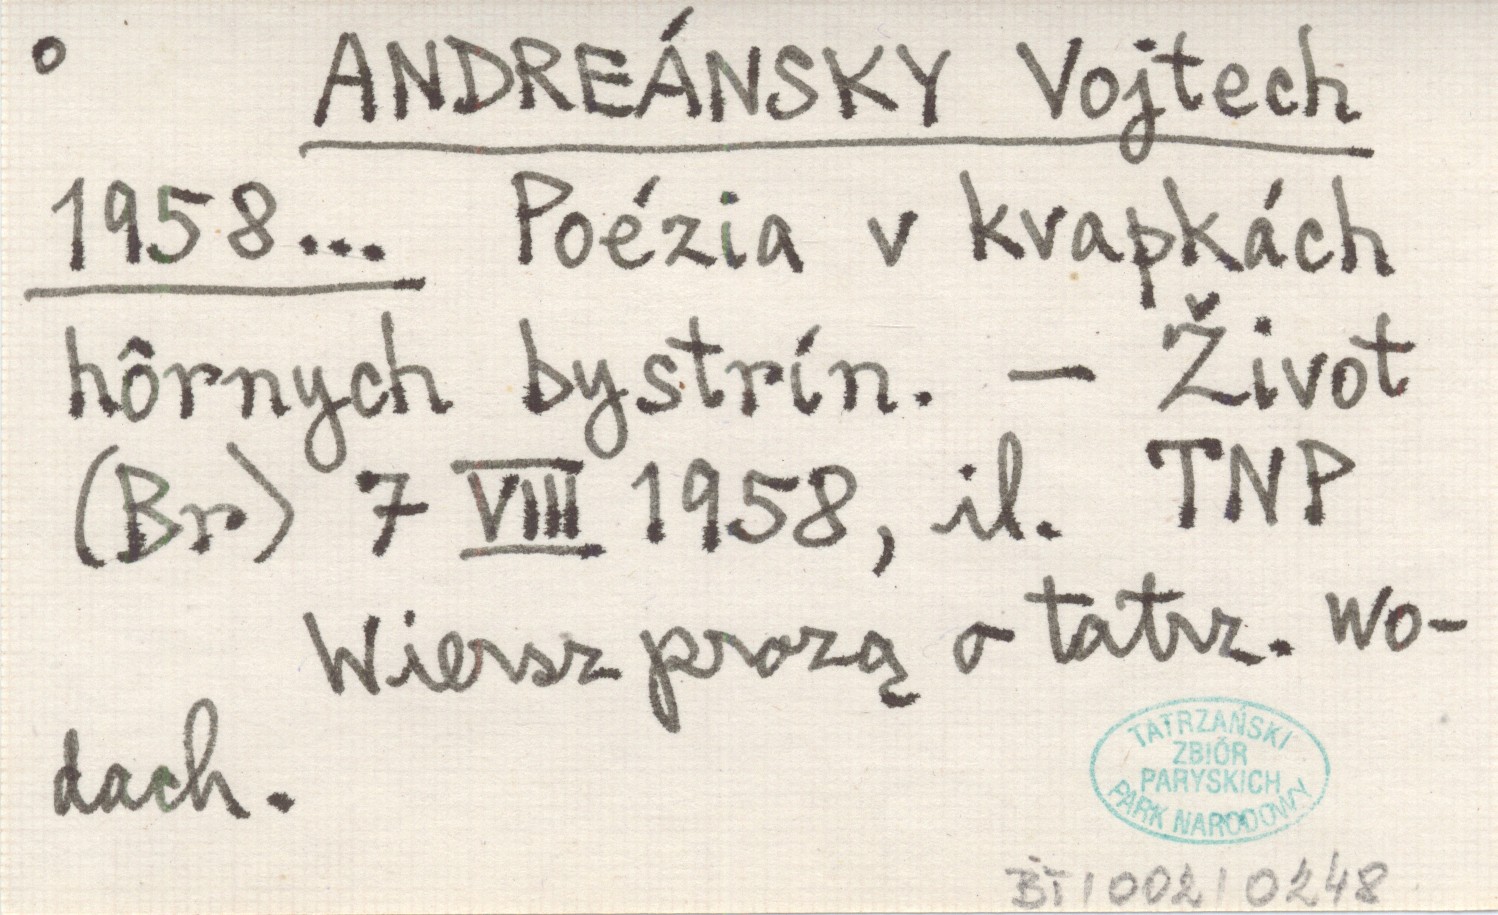 o ANDREÁNSKY Vojtech
1958... Poézia v kvapkách
hôrnych bystrín. – Život
(Br) 7 VIII 1958, il. TNP
Wiersz prozą o tatrz. wo-
dach.
TATRZAŃSKI
ZBIÓR
PARYSKICH
PARK NARODOWY
BT/002/0248